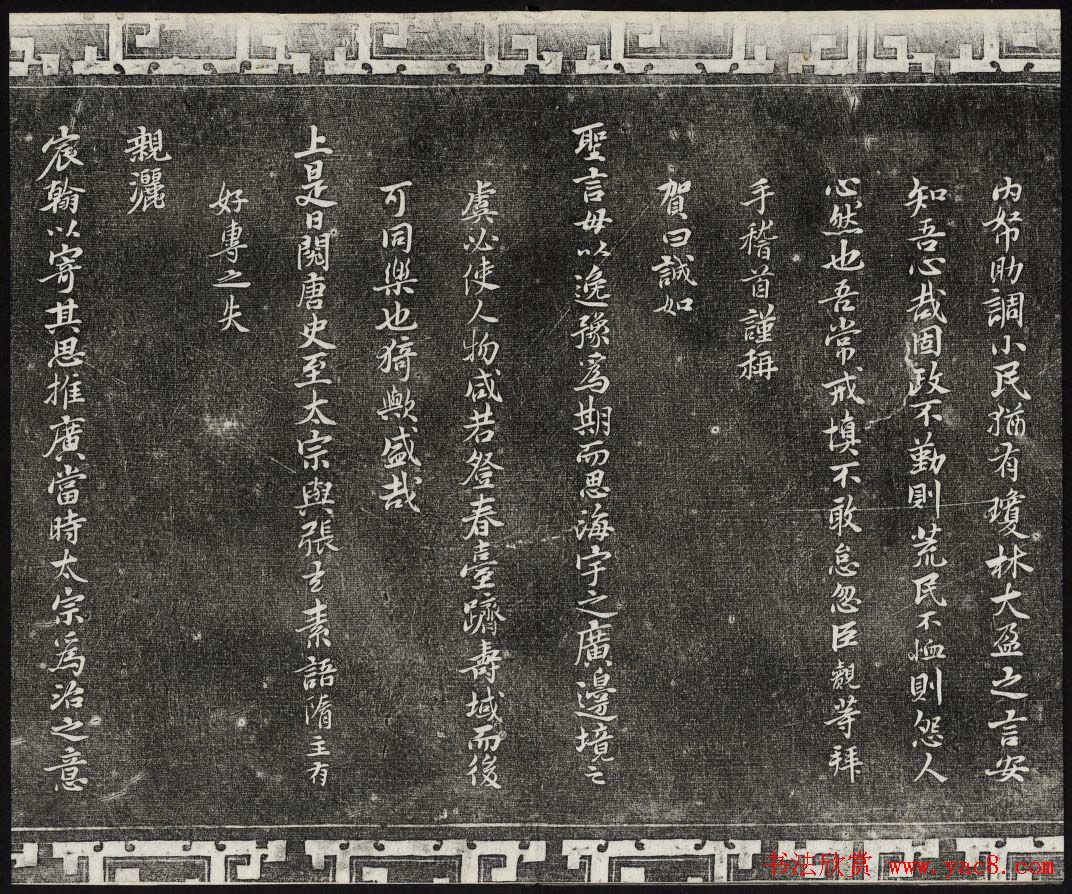 內帑助調小民猶有瓊林大盈之言安
知吾心哉固政不勤則荒民不恤則怨人
心然也吾常戒慎不敢怠忽臣觀等拜
手稽首謹稱
賀曰誠如
聖言毋以逸豫為期而思海宇之廣邊境之
虞必使人物咸若登春臺躋壽域而後
可同樂也猗歟盛哉
上是日閱唐史至太宗與張玄素語隋主有
好專之失
親灑
宸翰以寄其思推廣當時太宗為治之意
书法欣赏 www.yac8.com